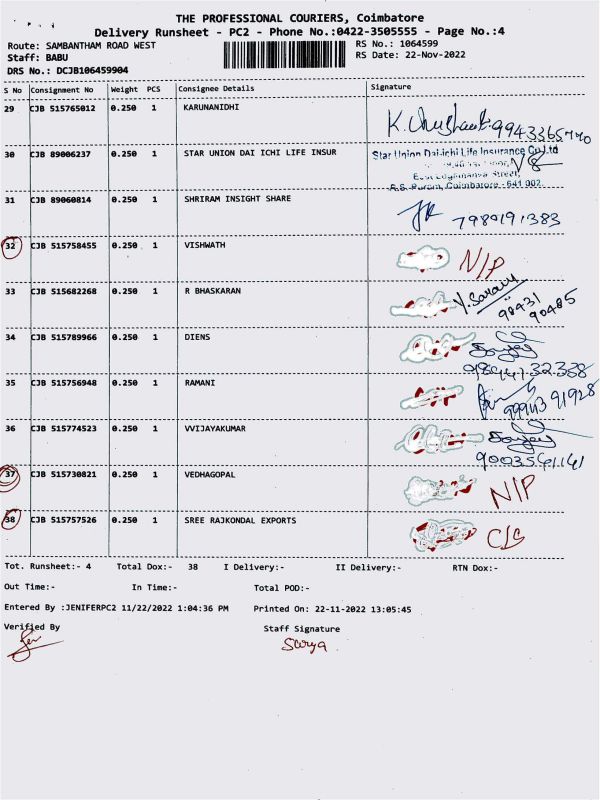 THE PROFESSIONAL COURIERS, Coimbatore
Delivery Runsheet - PC2 - Phone No.:0422-3505555 - Page No.:4
Route: SAMBANTHAM ROAD WEST RS No.: 1064599
Staff: BABU RS Date: 22-Nov-2022
DRS No.: DCJB106459904
S No Consignment No Weight PCS Consignee Details Signature
29 CJB 515765012 0.250 1 KARUNANIDHI
30 CJB 89006237 0.250 1 STAR UNION DAI ICHI LIFE INSUR Star Union Dai-ichi Life Insurance Co Ltd
R.S. Puram, Coimbatore - 641 002
31 CJB 89060814 0.250 1 SHRIRAM INSIGHT SHARE 7989191383
32 CJB 515758455 0.250 1 VISHWATH N/P
33 CJB 515682268 0.250 1 R BHASKARAN
98431
90485
34 CJB 515789966 0.250 1 DIENS
35 CJB 515756948 0.250 1 RAMANI
36 CJB 515774523 0.250 1 VVIJAYAKUMAR
9003561141
37 CJB 515730821 0.250 1 VEDHAGOPAL N/P
38 CJB 515757526 0.250 1 SREE RAJKONDAL EXPORTS
Tot. Runsheet:- 4 Total Dox:- 38 I Delivery:- II Delivery:- RTN Dox:-
Out Time:- In Time:- Total POD:-
Entered By :JENIFERPC2 11/22/2022 1:04:36 PM Printed On: 22-11-2022 13:05:45
Verified By Staff Signature
Surya